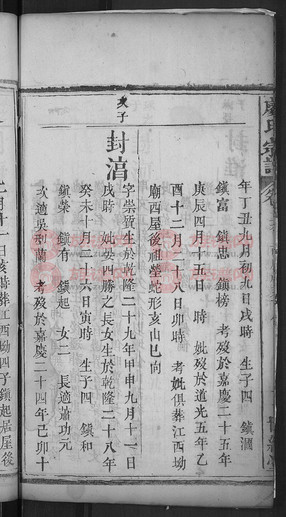 年丁丑九月初九日戌時 生子四 鎮
鎮富 鎮忠 鎮榜 考歿於嘉慶二十五年
庚辰四月十五日 時 妣歿於道光五年乙
酉十二月十八日卯時 考妣俱葬江西坳
廟西屋後祖塋蛇形亥山巳向
次子
封濇
字崇質生於乾隆二十九年甲申九月十一日
戌時 妣晏四勝之長女生於乾隆二十八年
癸未十月三六日寅時 生子四 鎮和
鎮榮 鎮有 鎮起 女二 長適蕭功元
次適吳利蘭 考歿於嘉慶二十四年己卯十
時葬江西坳四子鎮起居屋後
氏宗譜